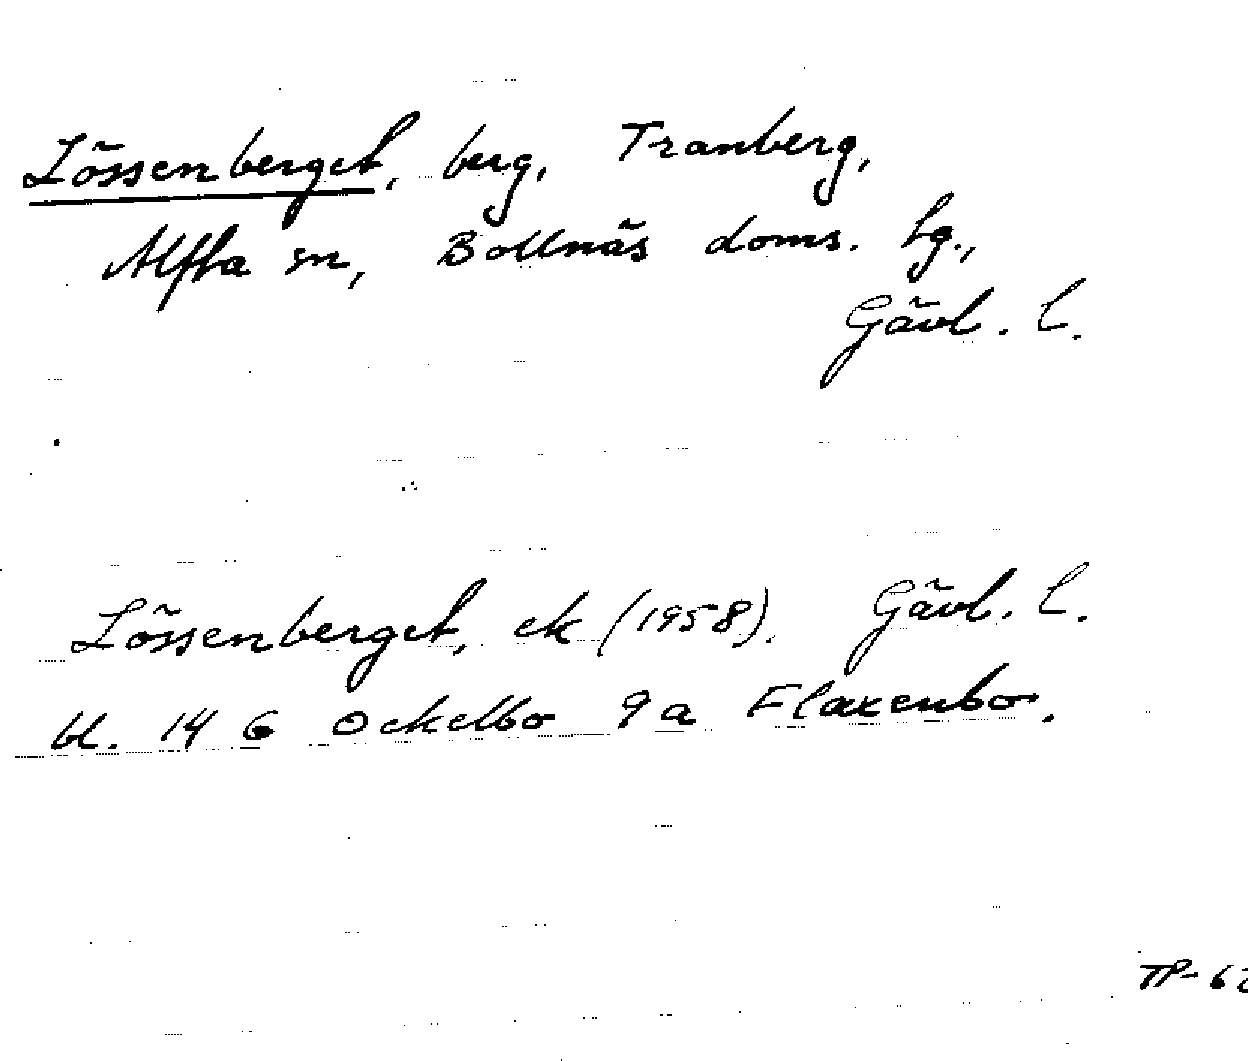 Lössenberget, berg, Tranberg,
Alfta sn, Bollnäs doms. hg.,
Gävl. l.
Lössenberget, ek (1958). Gävl. l.
bl. 14 G Ockelbo 9a Flaxenbo.
TP-62